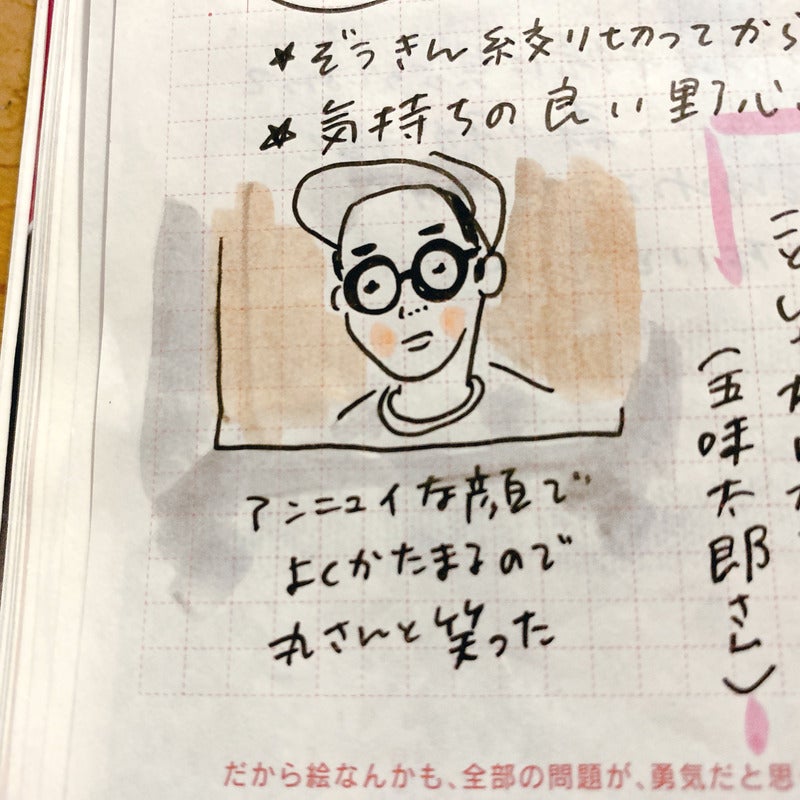 ★ぞうきん絞り切ってから
★気持ちの良い野心
(五味太郎さん)
アンニュイな顔で
よくかたまるので
丸さんと笑った
だから絵なんかも、全部の問題が、勇気だと思